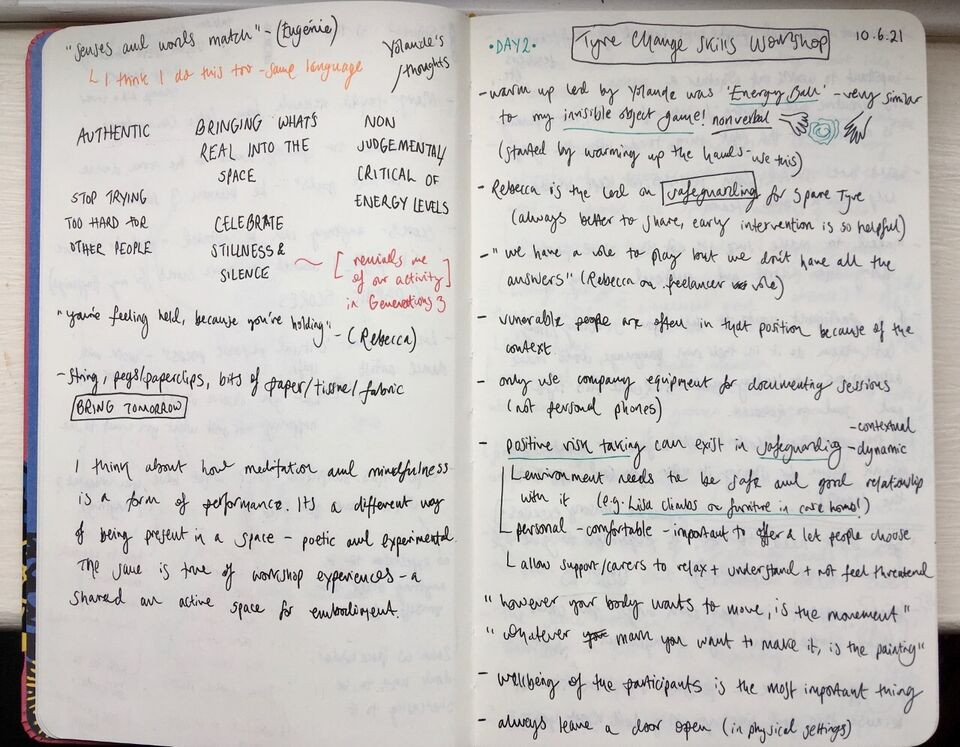 "senses and words match" - (Eugénie)
Yolande's
thoughts
I think I do this too - same language
AUTHENTIC
STOP TRYING
TOO HARD FOR
OTHER PEOPLE
BRINGING WHAT'S
REAL INTO THE
SPACE
CELEBRATE
STILLNESS &
SILENCE
NON
JUDGEMENTAL/
CRITICAL OF
ENERGY LEVELS
[reminds me
of our activity]
in Generations 3
"you're feeling held, because you're holding" - (Rebecca)
- string, pegs/paperclips, bits of paper/tissue/fabric
BRING TOMORROW
I think about how meditation and mindfulness
is a form of performance. Its a different way
of being present in a space - poetic and experimental.
The same is true of workshop experiences - a
shared an active space for embodiment.
• DAY 2 •
Tyre Change Skills Workshop
10.6.21
- warm up led by Yolande was 'Energy Ball' - very similar
to my invisible object game! nonverbal
(started by warming up the hands - use this)
- Rebecca is the lead on safeguarding for Spare Tyre
(always better to share, early intervention is so helpful)
- "we have a role to play but we don't have all the
answers" (Rebecca on freelancer role)
- vunerable people are often in that position because of the
context
- only use company equipment for documenting sessions
(not personal phones)
- contextual
- positive risk taking can exist in safeguarding - dynamic
environment needs to be safe and good relationship
with it (e.g. Lisa climbs on furniture in care homes!)
personal - comfortable - important to offer & let people choose
allow support/carers to relax + understand + not feel threatend
"however your body wants to move, is the movement"
"whatever mark you want to make it, is the painting"
- wellbeing of the participants is the most important thing
- always leave a door open (in physical settings)